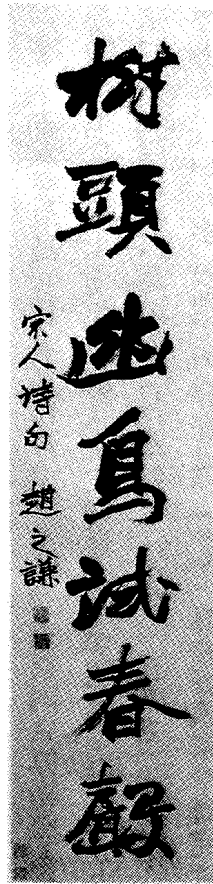 樹頭幽鳥試春聲
宋人詩句 趙之謙